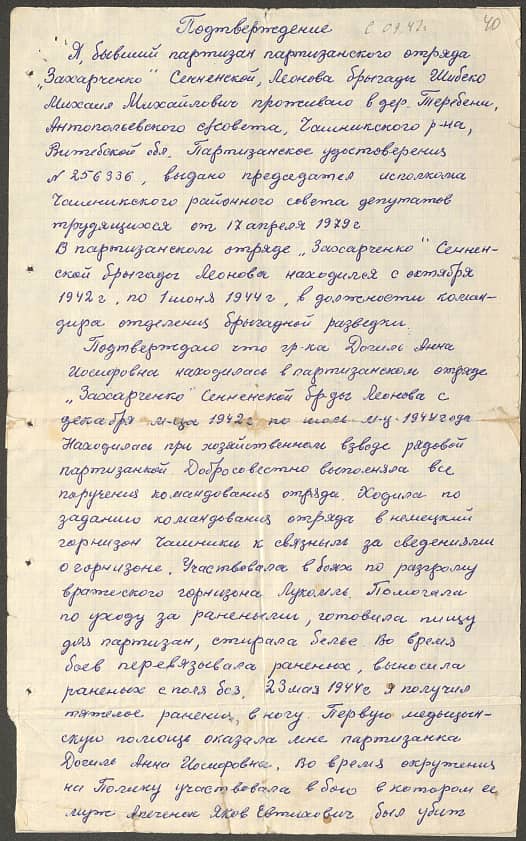 Подтверждение с 09.42г. 40
Я, бывший партизан партизанского отряда
„Захарченко" Сенненской, Леонова брыгады Шибеко
Михаил Михайлович проживаю в дер. Теребени,
Антопольевского с/совета, Чашникского р-на,
Витебской обл. Партизанское удостоверения
№ 256936, выдано председател исполкома
Чашникского районного совета депутатов
трудящихся от 17 апреля 1979 г
В партизанском отряде „Захарченко" Сеннен-
ской брыгады Леонова находился с октября
1942 г, по 1 июня 1944 г, в должности коман-
дира отделения брыгадной разведки.
Подтверждаю что гр-ка Догиль Анна
Иосифовна находилась в партизанском отряде
„Захарченко" Сенненской бр-ды Леонова с
декабря м-ца 1942 г по июль м-ц 1944 года
Находилась при хозяйственном взводе рядовой
партизанкой Добросовестно выполняла все
поручения командования отряда. Ходила по
заданию командования отряда в немецкий
горнизон Чашники к связным за сведениями
о горнизоне. Участвовала в боях по разгрому
вражеского горнизона Лукомль. Помогала
по уходу за раненыли, готовила пищу
для партизан, стирала белье. Во время
боев перевязывала раненых, выносила
раненых с поля боя. 23 мая 1944 г я получил
тяжелое ранения в ногу. Первую медыцын-
скую помощь оказала мне партизанка
Догиль Анна Иосифовна. Во время окружения
на Полику участвовала в бою в котором ее
муж Апеченок Яков Евтихович был убит